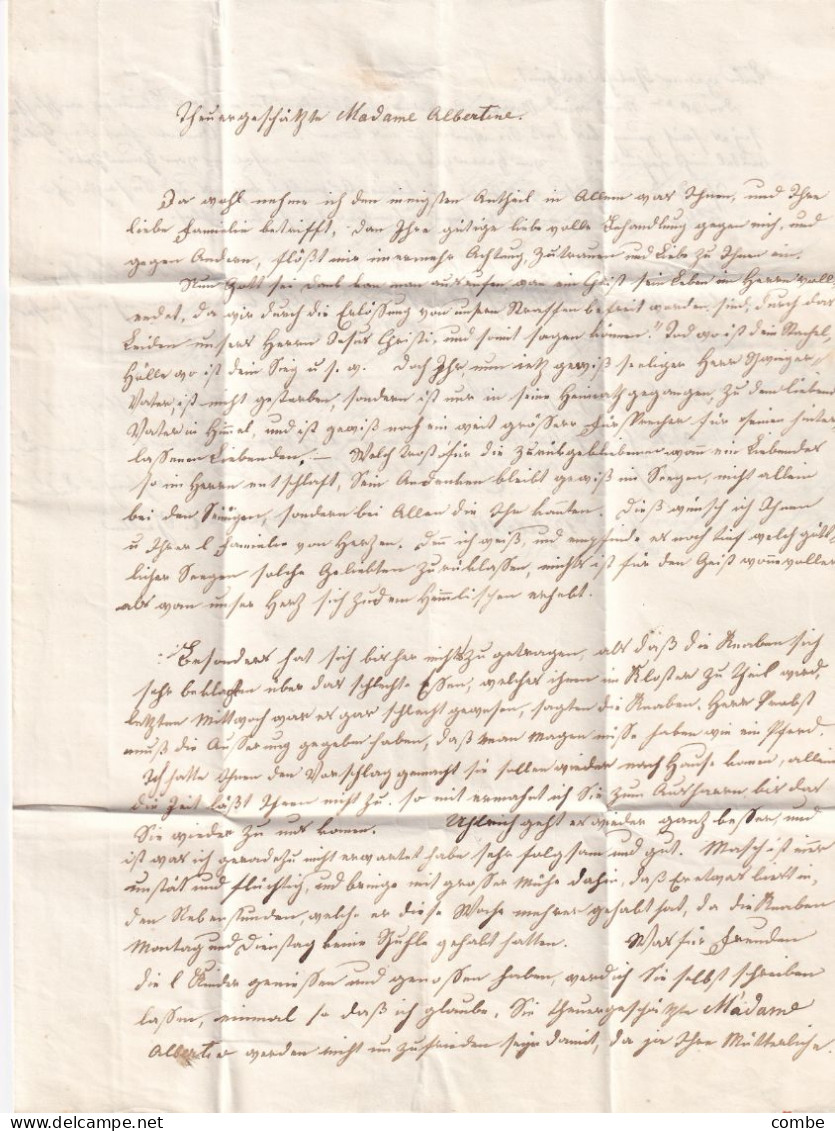 Theuergeschätzte Madame Albertine.
Ja wohl nehme ich den innigsten Antheil in Allem was Ihnen, und Ihre
liebe Familie betrifft, dan Ihre gütige liebe volle Behandlung gegen mich, und
gegen Andern, flößt mir immermehr Achtung, Zutrauen und Liebe zu Ihnen ein.
Nun Gott sei Dank kan man ausrufen wan ein Geist sein Leben im Herrn voll-
endet, da wir durch die Erlössung von unsern Straffen befreit worden sind, durch das
Leiden unsers Herrn Jesus Christi, und somit sagen können." Tod wo ist dein Stachel,
Hölle wo ist dein Sieg u. s. w. Doch Ihr nun ietz gewiß seeliger Herr Schwieger
Vater, ist nicht gestorben, sondern ist nur in seine Heimath gegangen, zu dem lieben
Vater in Himmel, und ist gewiß noch ein weit grösserer Fürsprecher für seinen hinter
lassenen Liebenden. — Welch Trost für die Zurükgebliebenen wenn ein Liebender
so im Herrn entschlaft, Sein Andenken bleibt gewiß im Seegen, nicht allein
bei den Seinigen, sondern bei Allen die Ihn kannten. Dieß wünsch ich Ihnen
u Ihrer l Familie von Herzen. Denn ich weiß, und empfinde es noch tief welch gött-
licher Seegen solche Geliebten zurüklassen, nichts ist für den Geist wonnevoller
als wan unser Herz sich zu dem Himmlischen erhebt.
Besonders hat sich bis her nichts zu getragen, als daß die Knaben sich
sehr beklagten über das schlechte Essen, welches ihnen im Kloster zu Theil wird,
letzten Mittwoch war es gar schlecht gewesen, sagten die Knaben. Herr Probst
muß die Ausserung gegeben haben, daß man Magen müsse haben wie ein Pferd.
Ich hatte Ihnen den Vorschlag gemacht sie sollen wieder nach Hause komen, allein
die Zeit läßt Ihnen nicht zu. so mit ermahnt ich Sie zum Ausharren bis das
Sie wieder zu uns komen. Uhlrich geht es wieder ganz besser, und
ist was ich geradezu nicht erwartet habe sehr folgsam und gut. Masch ist imer
unstät und flüchtig, und bringe mit grosser Mühe dahin, daß Er etwas liest in
den Nebenstunden, welche er diese Woche mehrer gehabt hat, da die Knaben
Montag und Dienstag keine Schule gehabt hatten. Was für Freuden
die l Kinder geniessen und genossen haben, werd ich Sie selbst schreiben
lassen, einmal so daß ich glaube, Sie theuergeschätzte Madame
Albertine werden nicht unzufrieden seyn damit, da ja Ihre Mütterliche
combe